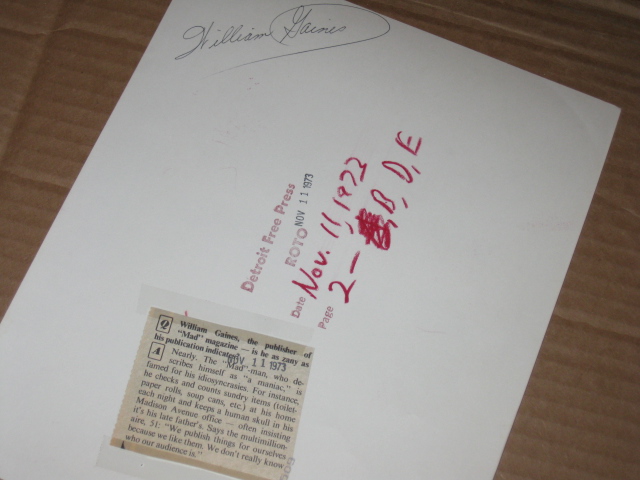 William Gaines
Detroit Free Press
ROTO NOV 1 1 1973
Date Nov. 11, 1973
Page 2- B, D, E
Q William Gaines, the publisher of
"Mad" magazine — is he as zany as
his publication indicated?
NOV 1 1 1973
A Nearly. The "Mad" man, who de-
scribes himself as "a maniac," is
famed for his idiosyncrasies. For instance,
he checks and counts sundry items (toilet-
paper rolls, soup cans, etc.) at his home
each night and keeps a human skull in his
Madison Avenue office — often insisting
it's his late father's. Says the multimillion-
aire, 51: "We publish things for ourselves
because we like them. We don't really know
who our audience is."